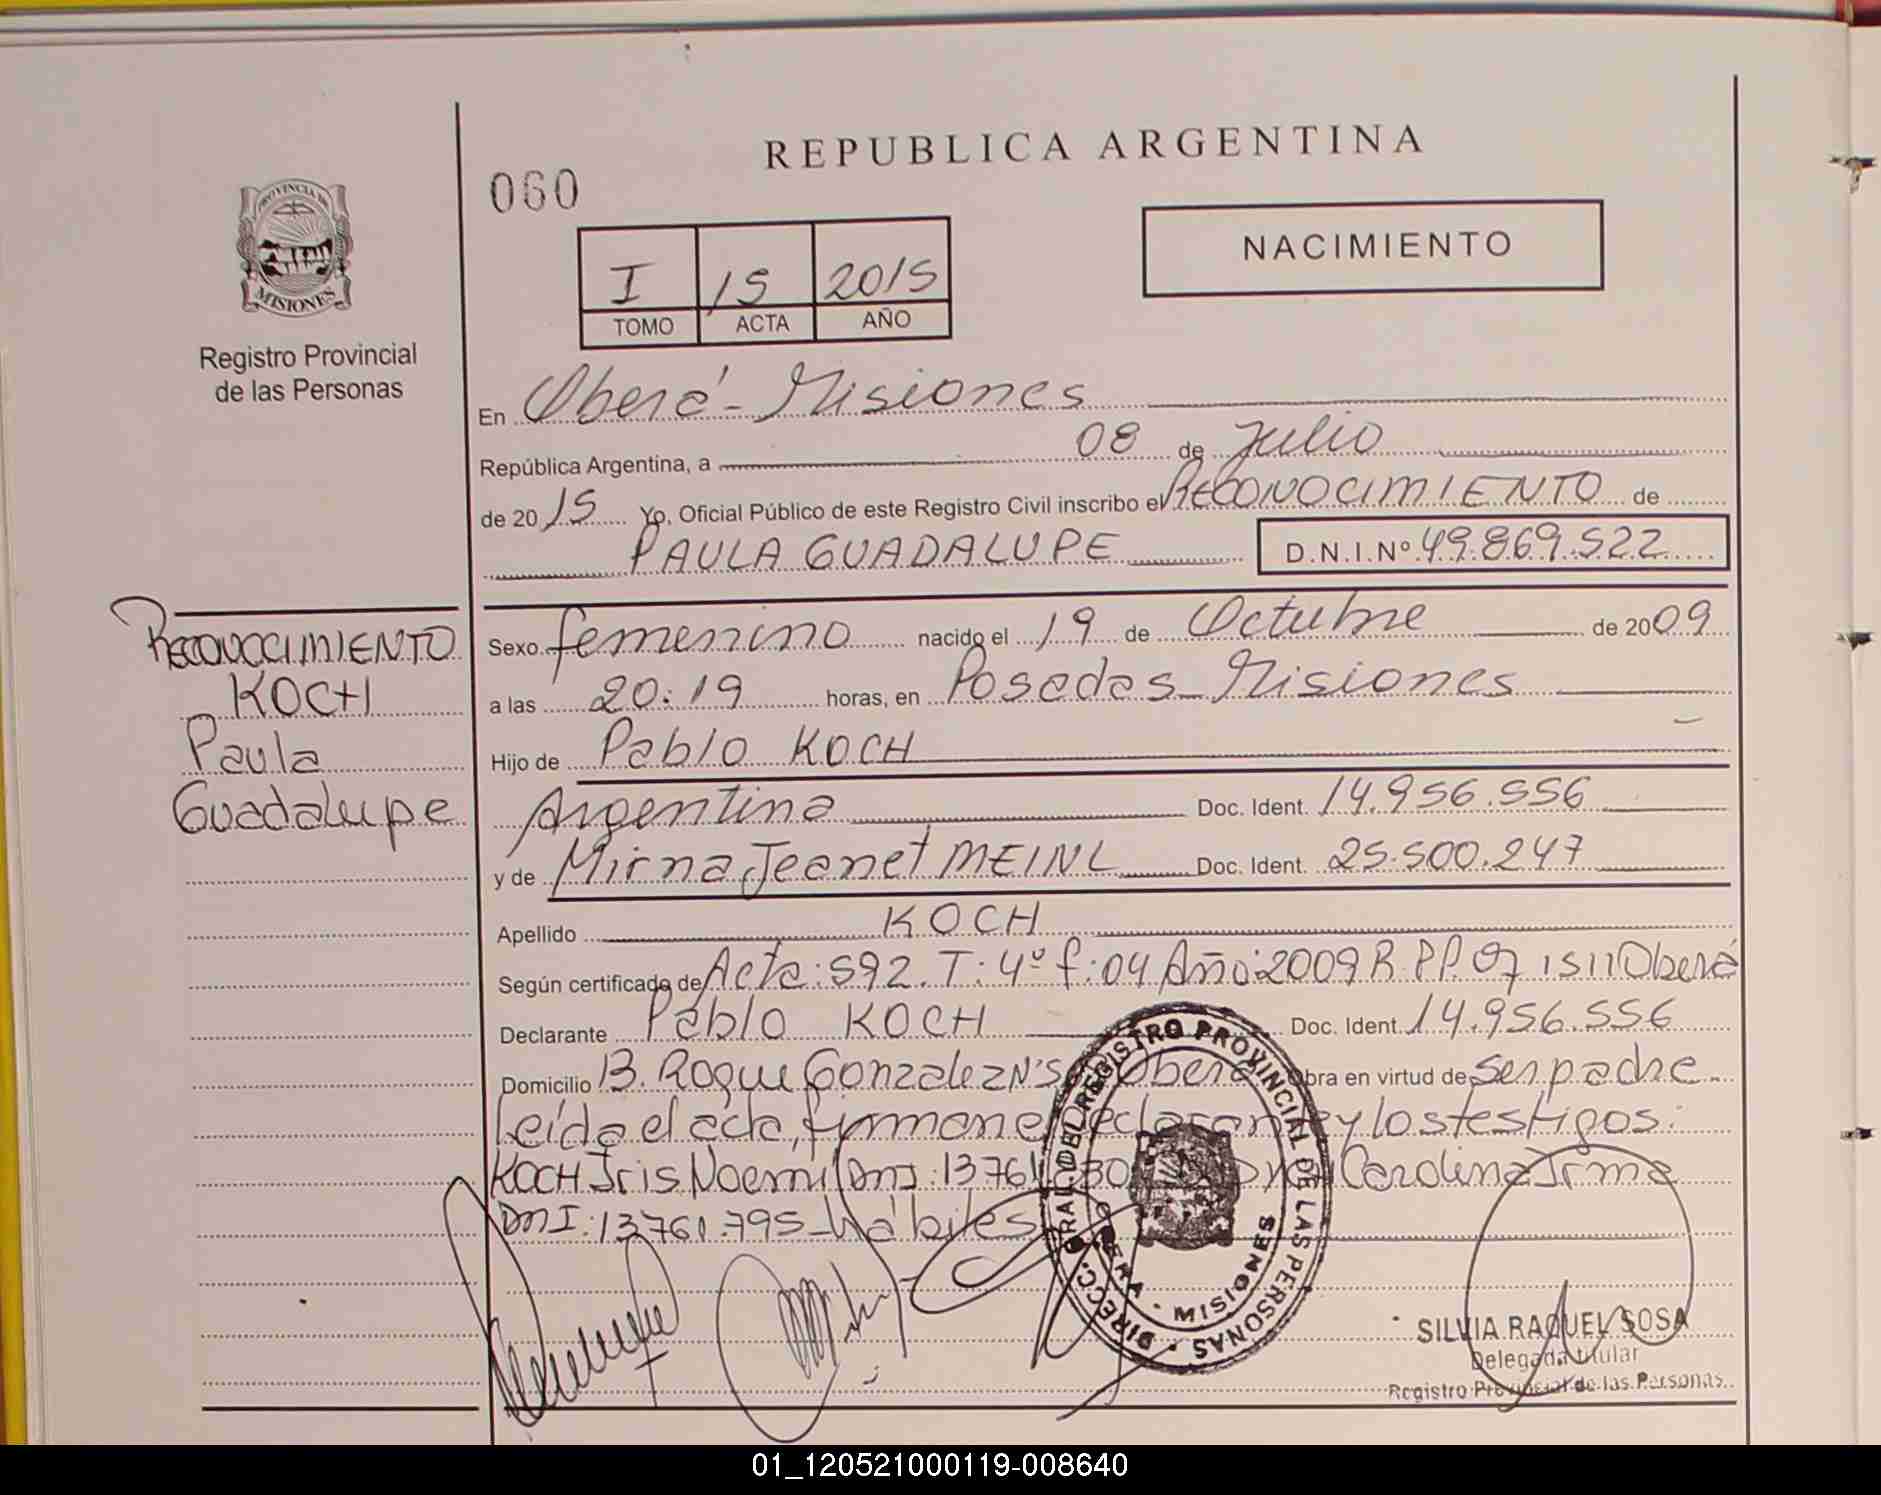 REPUBLICA ARGENTINA
060
PROVINCIA DE
MISIONES
Registro Provincial
de las Personas
I 15 2015
TOMO ACTA AÑO
NACIMIENTO
En Oberá - Misiones
República Argentina, a 08 de Julio
de 2015 Yo, Oficial Público de este Registro Civil inscribo el RECONOCIMIENTO de
PAULA GUADALUPE D.N.I.Nº 49.869.522
RECONOCIMIENTO
KOCH
Paula
Guadalupe
Sexo femenino nacido el 19 de Octubre de 2009
a las 20:19 horas, en Posadas - Misiones
Hijo de Pablo KOCH
Argentina Doc. Ident. 14.956.556
y de Mirna Jeanet MEINL Doc. Ident. 25.500.247
Apellido KOCH
Según certificado de Acta: 592. T: 4º f: 04 Año: 2009 R.P.P. 07 1511 Oberá
Declarante Pablo KOCH Doc. Ident 14.956.556
Domicilio B. Roque Gonzalez Oberá Obra en virtud de ser padre
Leída el acta, firman el Declarante y los testigos:
KOCH Iris Noemi DNI: 13761 Carolina Irma
DNI: 13.761.795 - Hábiles
DIRECC. GRAL. DEL REGISTRO PROVINCIAL DE LAS PERSONAS
OBERA - MISIONES
SILVIA RAQUEL SOSA
Delegada titular
Registro Provincial de las Personas
01_120521000119-008640